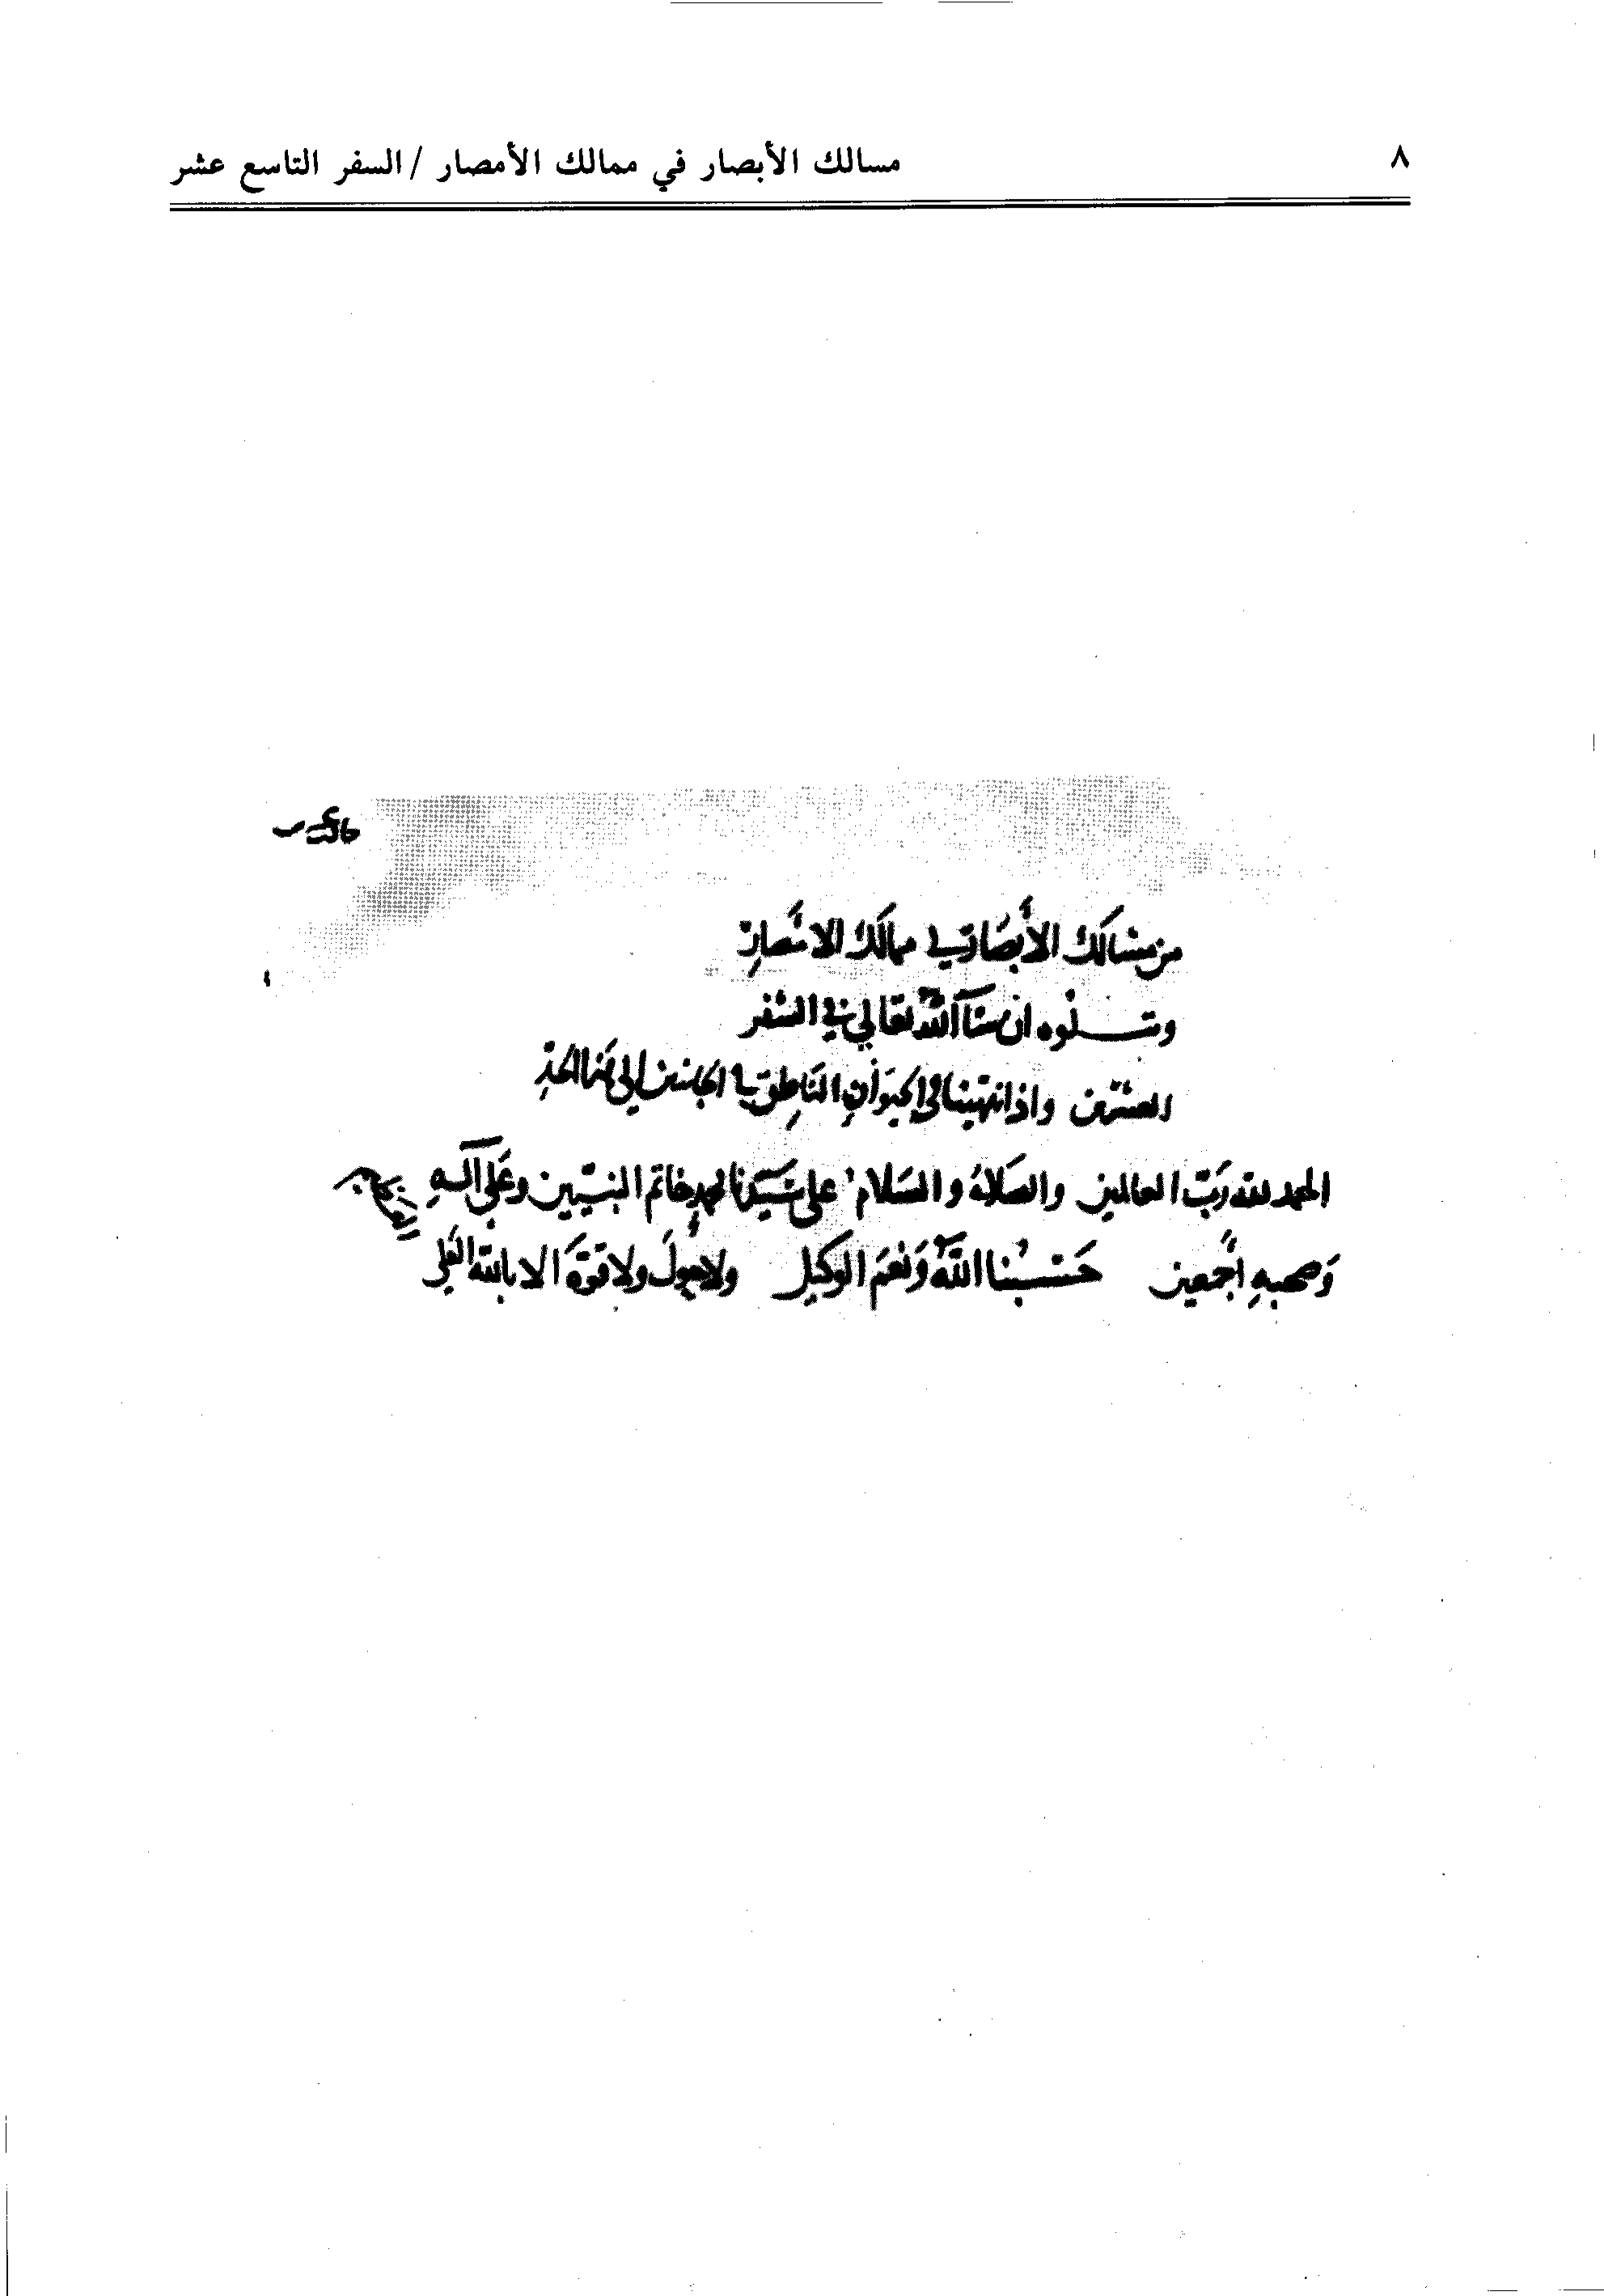 ٨
مسالك الأبصار في ممالك الأمصار /السفر التاسع عشر
من مسَالك الأبصَار في ممالَك الامْصارِ
ويتلُوه ان شآ الله تعَالى في السّفر
العشرين واذ انتهينا في الحيَوانِ النَاطِق في الجانبين الى هَذا الحَدِّ
الحمد لله رَبّ العالمين والصَلاة والسَلام على سَيدنا محمدٍ خاتم النبيّين وعَلى آلهِ
وَصحبهِ أجمعين حَسْبُنا اللّهُ وَنعْمَ الوكيل ولا حولَ ولا قوّةَ الا بالله العَلي